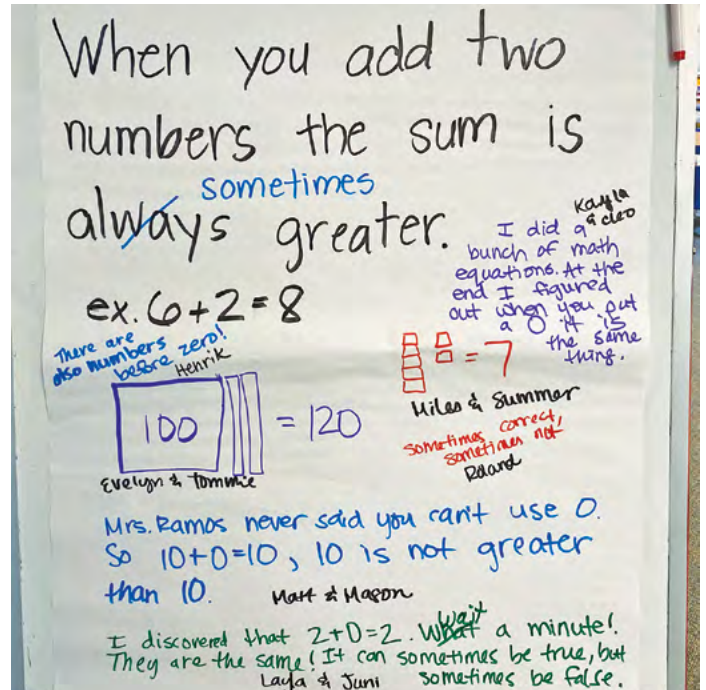 When you add two
numbers the sum is
sometimes
always greater.
Kayla
& Cleo
I did a
bunch of math
equations. At the
end I figured
out when you put
a 0 it is
the same
thing.
ex. 6+2=8
There are
also numbers
before zero!
Henrik
= 7
Miles & Summer
100 = 120
Evelyn & Tommie
sometimes correct,
sometimes not
Roland
Mrs. Ramos never said you can't use 0.
So 10+0=10, 10 is not greater
than 10. Matt & Mason
wait
I discovered that 2+0=2. What a minute!
They are the same! It can sometimes be true, but
Layla & Juni sometimes be false.